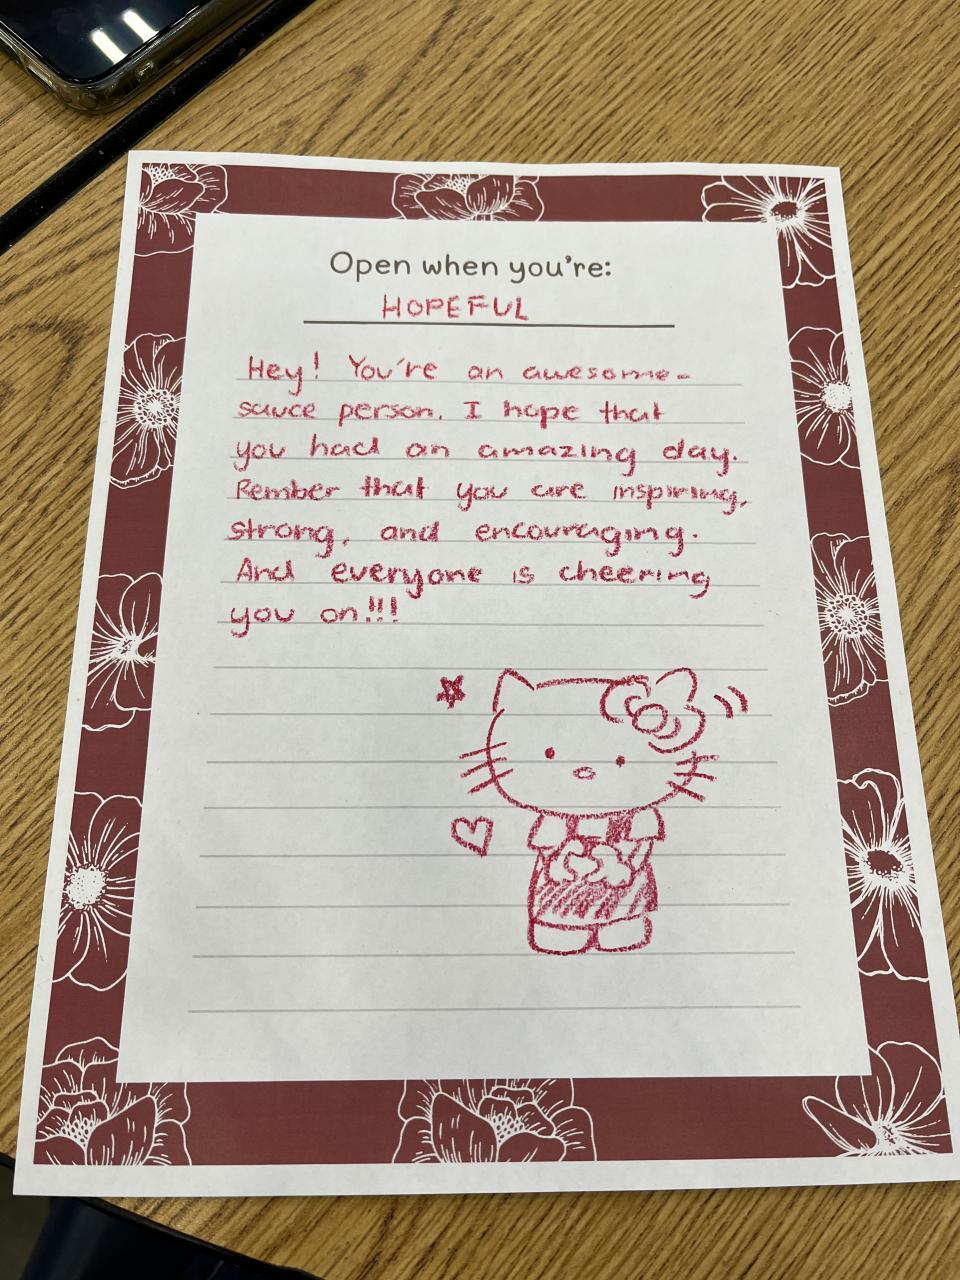 Open when you're:
HOPEFUL
Hey! You're an awesome-
sauce person. I hope that
you had an amazing day.
Rember that you are inspiring,
strong, and encouraging.
And everyone is cheering
you on!!!